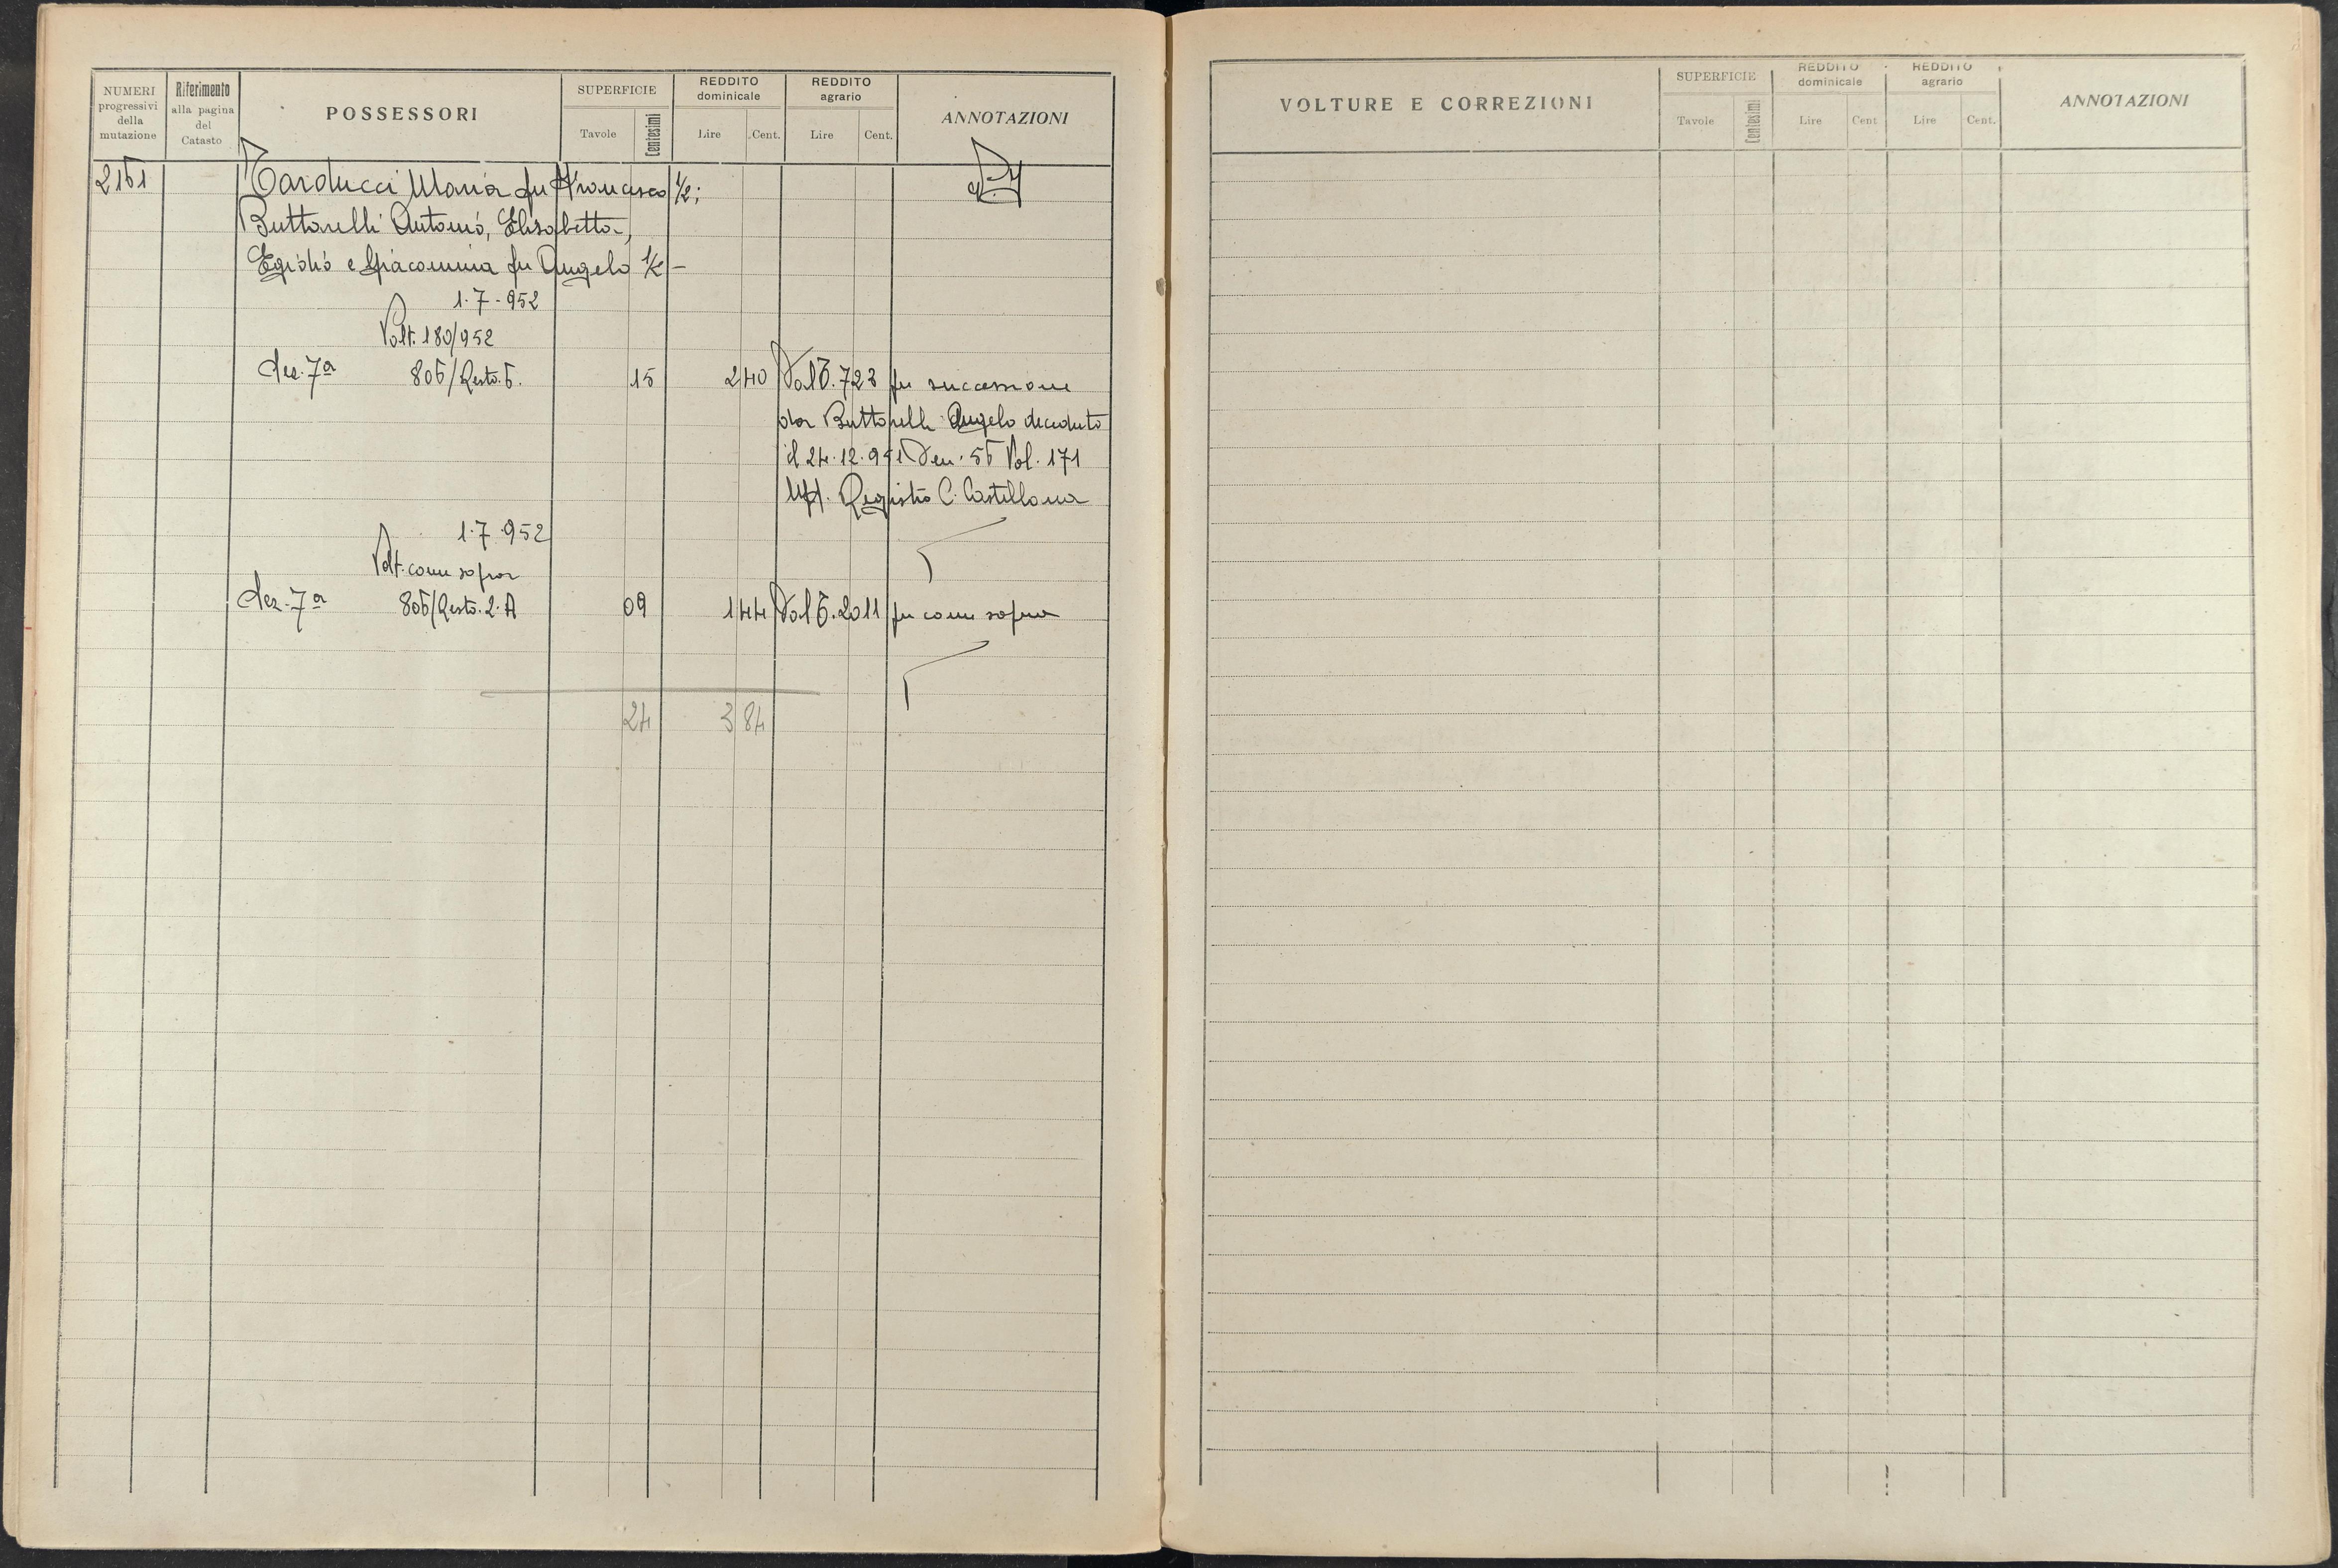 NUMERI progressivi della mutazione
Riferimento alla pagina del Catasto
POSSESSORI
SUPERFICIE
Tavole
Centesimi
REDDITO dominicale
Lire
Cent.
REDDITO agrario
Lire
Cent.
ANNOTAZIONI
Tarducci Maria fu Francesco 1/2;
Buttarelli Antonio, Elisabetta,
Egidio e Giacomina fu Angelo 1/2 -
1.7-952
Volt. 180/952
Sez. 7a 805/Resto.5. 15 2 40 Dal 5.723 per successione
da Buttarelli Angelo deceduto
il 24.12.951 Den. 55 Vol. 171
Uff. Registro C. Castellana
1.7.952
Volt. come sopra
Sez. 7a 805/Resto.2.A 09 1 44 Dal 5.2011 per come sopra
24 3 84
VOLTURE E CORREZIONI
SUPERFICIE
Tavole
Centesimi
REDDITO dominicale
Lire
Cent
REDDITO agrario
Lire
Cent.
ANNOTAZIONI